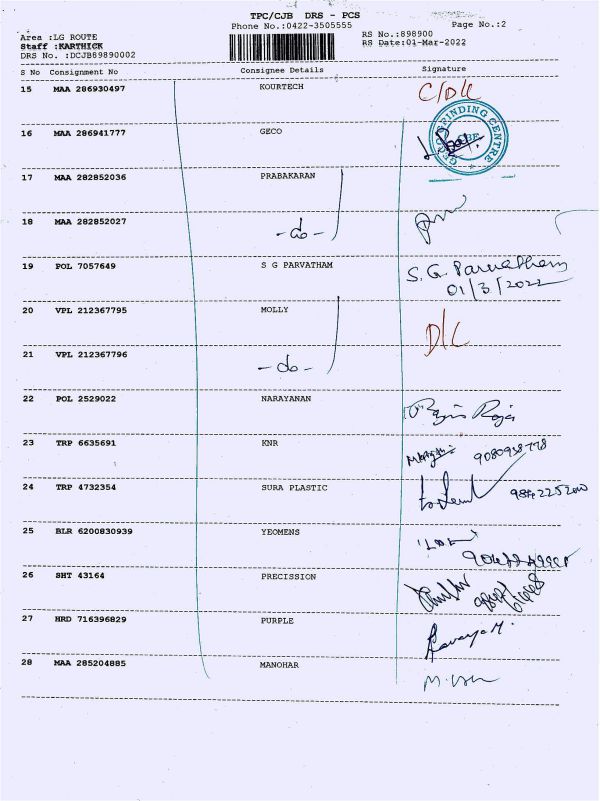 TPC/CJB DRS - PCS
Phone No.:0422-3505555
Page No.:2
Area :LG ROUTE
Staff :KARTHICK
DRS No. :DCJB89890002
RS No.:898900
RS Date:01-Mar-2022
S No Consignment No Consignee Details Signature
15 MAA 286930497 KOURTECH C/DLL
16 MAA 286941777 GECO
FINDING CENTRE
17 MAA 282852036 PRABAKARAN
18 MAA 282852027 -do-
19 POL 7057649 S G PARVATHAM S. G. Parvatham
01/3/2022
20 VPL 212367795 MOLLY D/L
21 VPL 212367796 -do-
22 POL 2529022 NARAYANAN Raja
23 TRP 6635691 KNR
24 TRP 4732354 SURA PLASTIC
25 BLR 6200830939 YEOMENS
26 SHT 43164 PRECISSION
27 HRD 716396829 PURPLE
28 MAA 285204885 MANOHAR